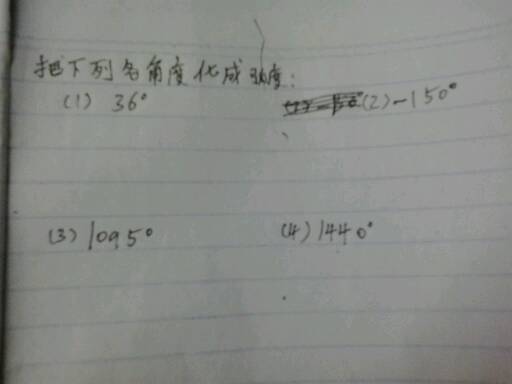 把下列各角度化成弧度:
(1) 36° (2) -150°
(3) 1095° (4) 1440°